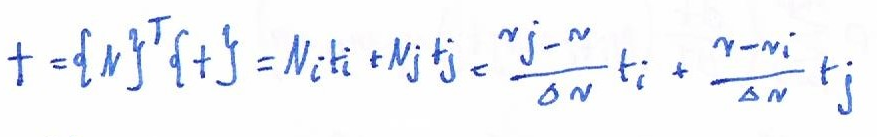 t = {N}ᵀ{t} = Nᵢtᵢ + Nⱼtⱼ = (rⱼ - r)/(Δr) tᵢ + (r - rᵢ)/(Δr) tⱼ